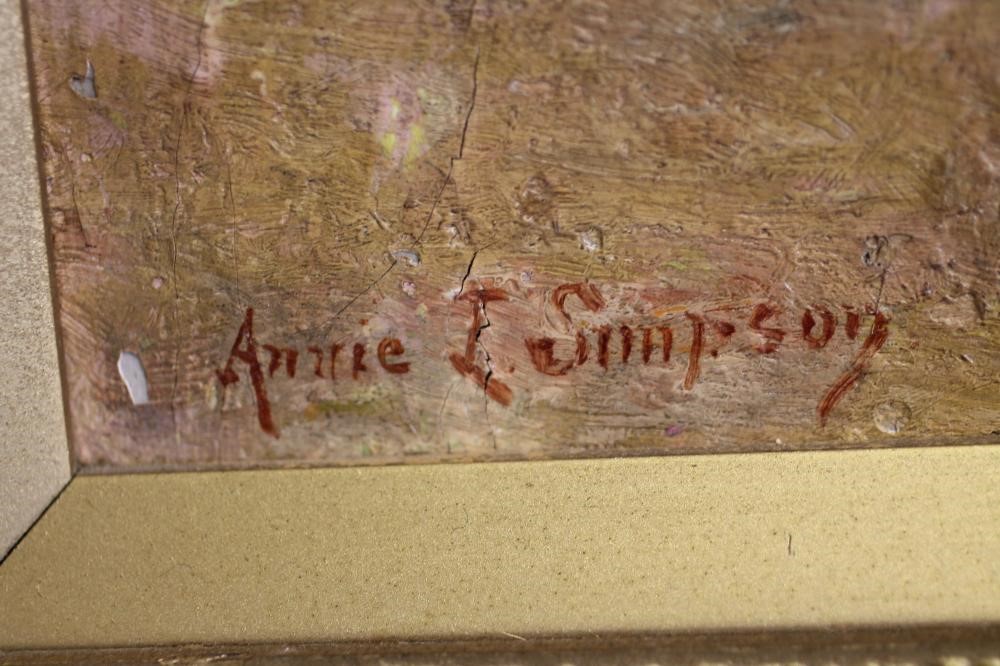 Annie L Simpson